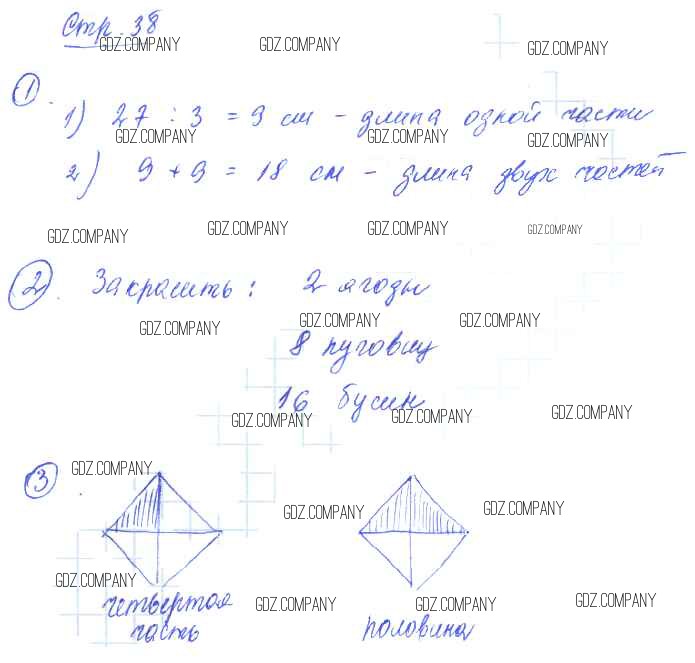 Стр. 38
GDZ.COMPANY GDZ.COMPANY GDZ.COMPANY
1
1) 27 : 3 = 9 см - длина одной части
GDZ.COMPANY GDZ.COMPANY GDZ.COMPANY
2) 9 + 9 = 18 см - длина двух частей
GDZ.COMPANY GDZ.COMPANY GDZ.COMPANY GDZ.COMPANY
2. Закрасить: 2 ягоды
GDZ.COMPANY GDZ.COMPANY GDZ.COMPANY
8 пуговиц
16 бусин
GDZ.COMPANY GDZ.COMPANY GDZ.COMPANY
3
GDZ.COMPANY
GDZ.COMPANY GDZ.COMPANY
GDZ.COMPANY GDZ.COMPANY GDZ.COMPANY GDZ.COMPANY
четвертая
часть
половина